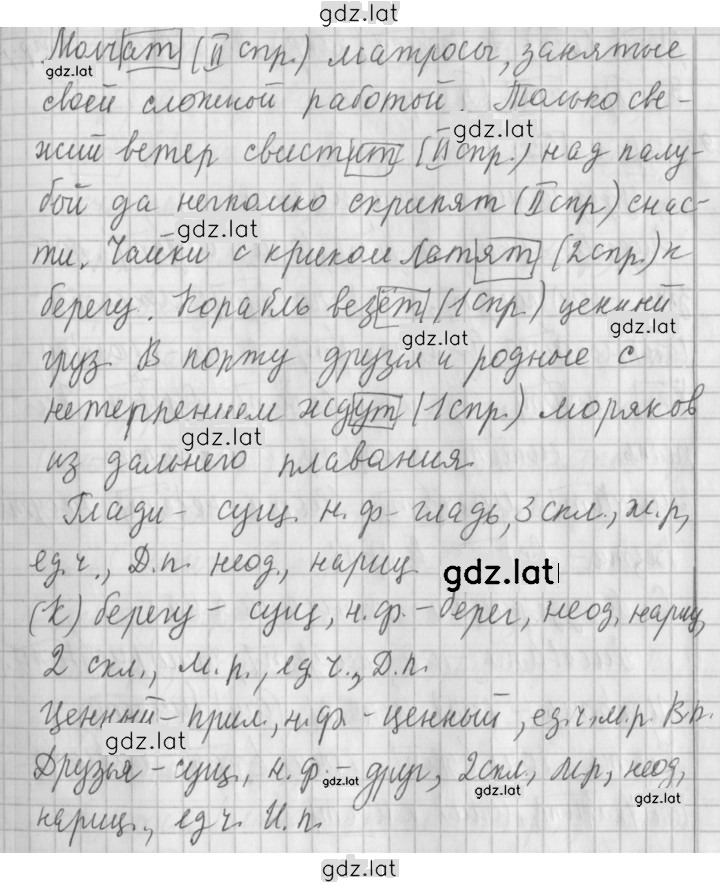 gdz.lat
Молчат (II спр.) матросы, занятые
gdz.lat
своей сложной работой. Только све-
gdz.lat
жий ветер свистит (II спр.) над палу-
бой да негромко скрипят (II спр) снас-
gdz.lat
ти. Чайки с криком летят (2 спр.) к
берегу. Корабль везёт (1 спр.) ценный
gdz.lat gdz.lat
груз. В порту друзья и родные с
нетерпением ждут (1 спр.) моряков
gdz.lat
из дальнего плавания.
Глади - сущ. н. ф - гладь, 3 скл., ж. р,
ед. ч., Д. п. неод., нариц.
gdz.lat
(К) берегу - сущ, н. ф. - берег, неод, нариц,
2 скл., м. р., ед. ч., Д. п.
Ценный - прил., н. ф. - ценный, ед. ч, м. р. В. п.
gdz.lat
Друзья - сущ, н. ф. - друг, 2 скл., м. р, неод,
gdz.lat gdz.lat gdz.lat
нариц., ед ч. И. п.
gdz.lat